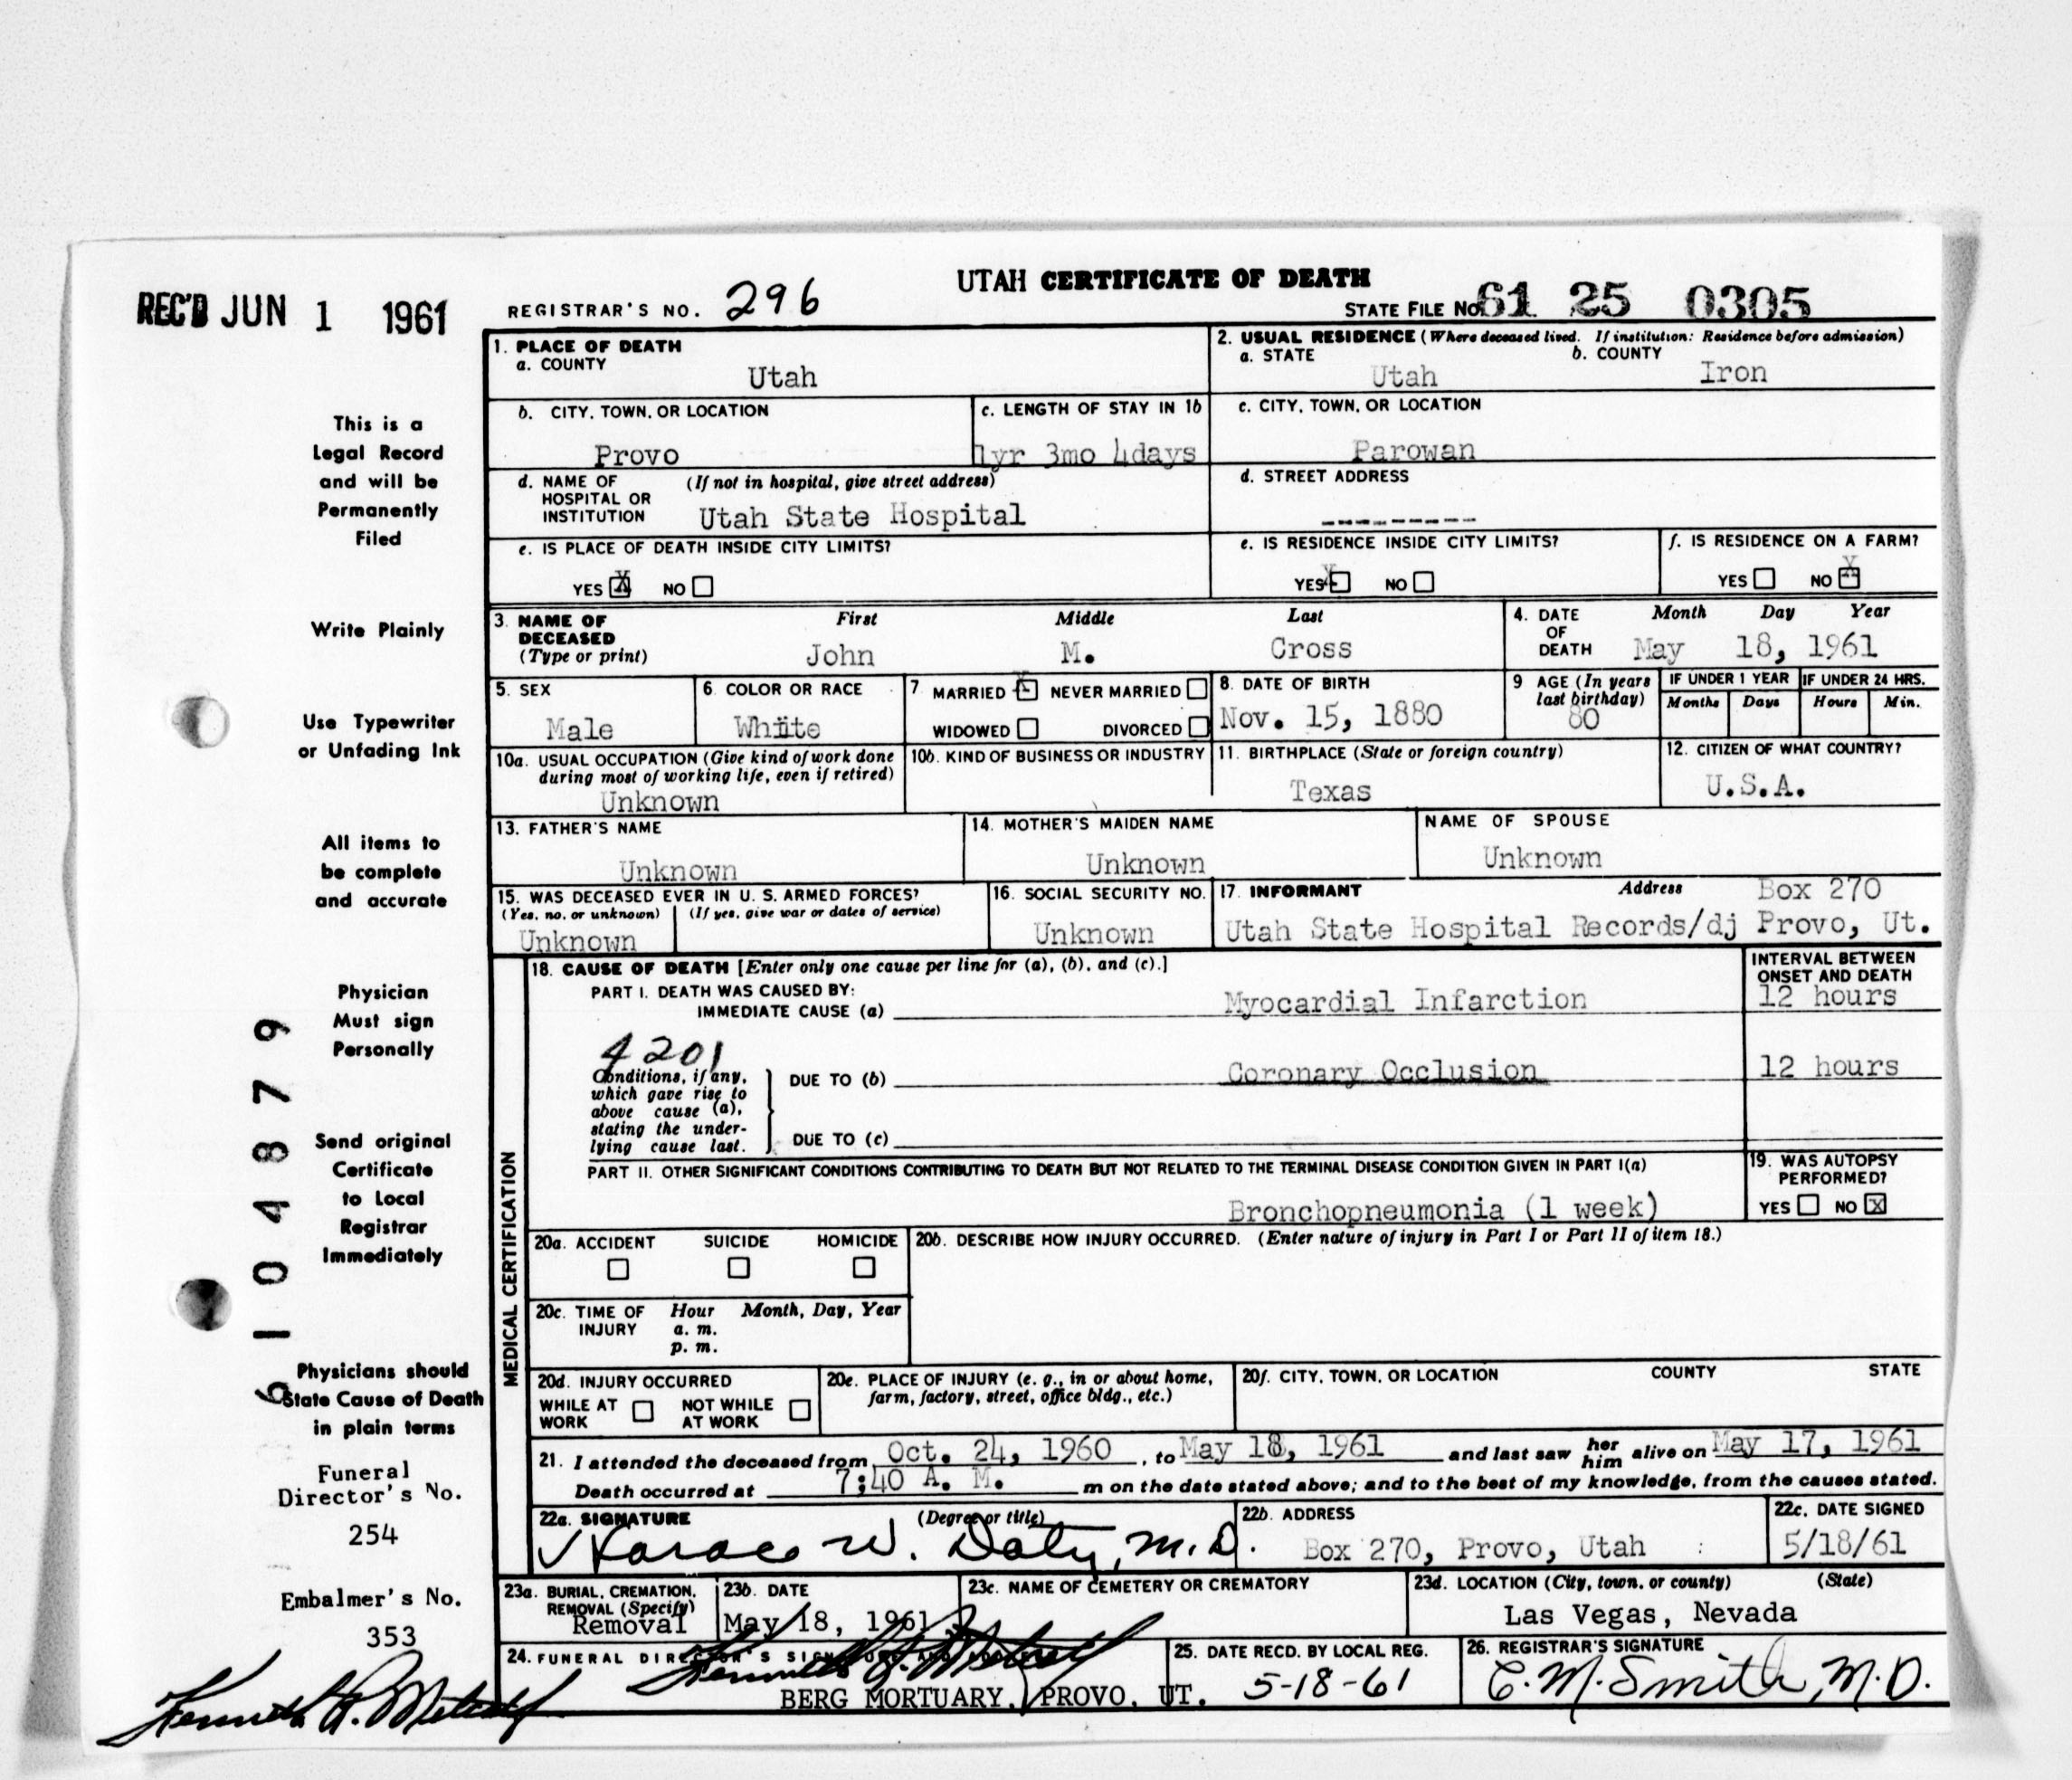 UTAH CERTIFICATE OF DEATH
REC'D JUN 1 1961
REGISTRAR'S NO. 296
STATE FILE No. 61 25 0305
1. PLACE OF DEATH
a. COUNTY
Utah
2. USUAL RESIDENCE (Where deceased lived. If institution: Residence before admission)
a. STATE
Utah
b. COUNTY
Iron
b. CITY, TOWN, OR LOCATION
Provo
c. LENGTH OF STAY IN 1b
1yr 3mo 4days
c. CITY, TOWN, OR LOCATION
Parowan
d. NAME OF HOSPITAL OR INSTITUTION
(If not in hospital, give street address)
Utah State Hospital
d. STREET ADDRESS
--------
e. IS PLACE OF DEATH INSIDE CITY LIMITS?
YES X NO
e. IS RESIDENCE INSIDE CITY LIMITS?
YES X NO
f. IS RESIDENCE ON A FARM?
YES NO X
3. NAME OF DECEASED (Type or print)
First Middle Last
John M. Cross
4. DATE OF DEATH
Month Day Year
May 18, 1961
5. SEX
Male
6. COLOR OR RACE
White
7 MARRIED X NEVER MARRIED
WIDOWED DIVORCED
8. DATE OF BIRTH
Nov. 15, 1880
9 AGE (In years last birthday)
80
IF UNDER 1 YEAR
Months Days
IF UNDER 24 HRS.
Hours Min.
10a. USUAL OCCUPATION (Give kind of work done during most of working life, even if retired)
Unknown
10b. KIND OF BUSINESS OR INDUSTRY
11. BIRTHPLACE (State or foreign country)
Texas
12. CITIZEN OF WHAT COUNTRY?
U.S.A.
13. FATHER'S NAME
Unknown
14. MOTHER'S MAIDEN NAME
Unknown
NAME OF SPOUSE
Unknown
15. WAS DECEASED EVER IN U. S. ARMED FORCES?
(Yes, no, or unknown) (If yes, give war or dates of service)
Unknown
16. SOCIAL SECURITY NO.
Unknown
17. INFORMANT Address Box 270
Utah State Hospital Records/dj Provo, Ut.
18. CAUSE OF DEATH [Enter only one cause per line for (a), (b), and (c).]
INTERVAL BETWEEN ONSET AND DEATH
PART I. DEATH WAS CAUSED BY:
IMMEDIATE CAUSE (a) Myocardial Infarction 12 hours
4201
Conditions, if any, which gave rise to above cause (a), stating the underlying cause last.
DUE TO (b) Coronary Occlusion 12 hours
DUE TO (c)
PART II. OTHER SIGNIFICANT CONDITIONS CONTRIBUTING TO DEATH BUT NOT RELATED TO THE TERMINAL DISEASE CONDITION GIVEN IN PART I(a)
Bronchopneumonia (1 week)
19. WAS AUTOPSY PERFORMED?
YES NO X
20a. ACCIDENT SUICIDE HOMICIDE
20b. DESCRIBE HOW INJURY OCCURRED. (Enter nature of injury in Part I or Part II of item 18.)
20c. TIME OF INJURY
Hour Month, Day, Year
a. m.
p. m.
20d. INJURY OCCURRED
WHILE AT WORK NOT WHILE AT WORK
20e. PLACE OF INJURY (e. g., in or about home, farm, factory, street, office bldg., etc.)
20f. CITY, TOWN, OR LOCATION COUNTY STATE
21. I attended the deceased from Oct. 24, 1960, to May 18, 1961 and last saw her him alive on May 17, 1961
Death occurred at 7:40 A. M. m on the date stated above; and to the best of my knowledge, from the causes stated.
22a. SIGNATURE (Degree or title)
W. Doty, M.D.
22b. ADDRESS
Box 270, Provo, Utah
22c. DATE SIGNED
5/18/61
MEDICAL CERTIFICATION
23a. BURIAL, CREMATION, REMOVAL (Specify)
Removal
23b. DATE
May 18, 1961
23c. NAME OF CEMETERY OR CREMATORY
23d. LOCATION (City, town, or county) (State)
Las Vegas, Nevada
24. FUNERAL DIRECTOR'S SIGNATURE AND ADDRESS
BERG MORTUARY, PROVO, UT.
25. DATE RECD. BY LOCAL REG.
5-18-61
26. REGISTRAR'S SIGNATURE
C. M. Smith, M.D.
This is a
Legal Record
and will be
Permanently
Filed
Write Plainly
Use Typewriter
or Unfading Ink
All items to
be complete
and accurate
Physician
Must sign
Personally
Send original
Certificate
to Local
Registrar
Immediately
Physicians should
State Cause of Death
in plain terms
6104879
Funeral
Director's No.
254
Embalmer's No.
353
Kenneth A. Metcalf